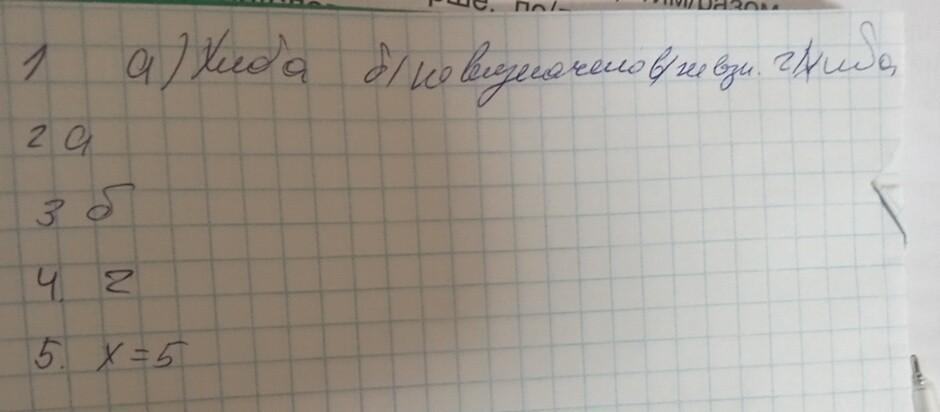 1 а) Хиба б) не визначено в) не взн. г) хиба
2 а
3 б
4. г
5. x = 5